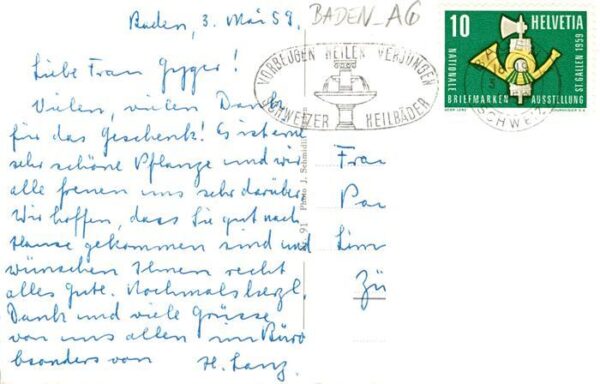 Baden, 3. Mai 59.
BADEN_AG
Liebe Frau Gyger!
Vielen, vielen Dank
für das Geschenk! Es ist eine
sehr schöne Pflanze und wir
alle freuen uns sehr darüber.
Wir hoffen, dass Sie gut nach
Hause gekommen sind und
wünschen Ihnen recht
alles Gute. Nochmals herzl.
Dank und viele Grüsse
von uns allen im Büro
besonders von H. Lanz.
VORBEUGEN HEILEN VERJÜNGEN
SCHWEIZER HEILBÄDER
10 HELVETIA
NATIONALE
BRIEFMARKEN AUSSTELLUNG
ST. GALLEN 1959
SCHWEIZ
91 Photo J. Schmidli
Frau
Pau
Lim
Zü